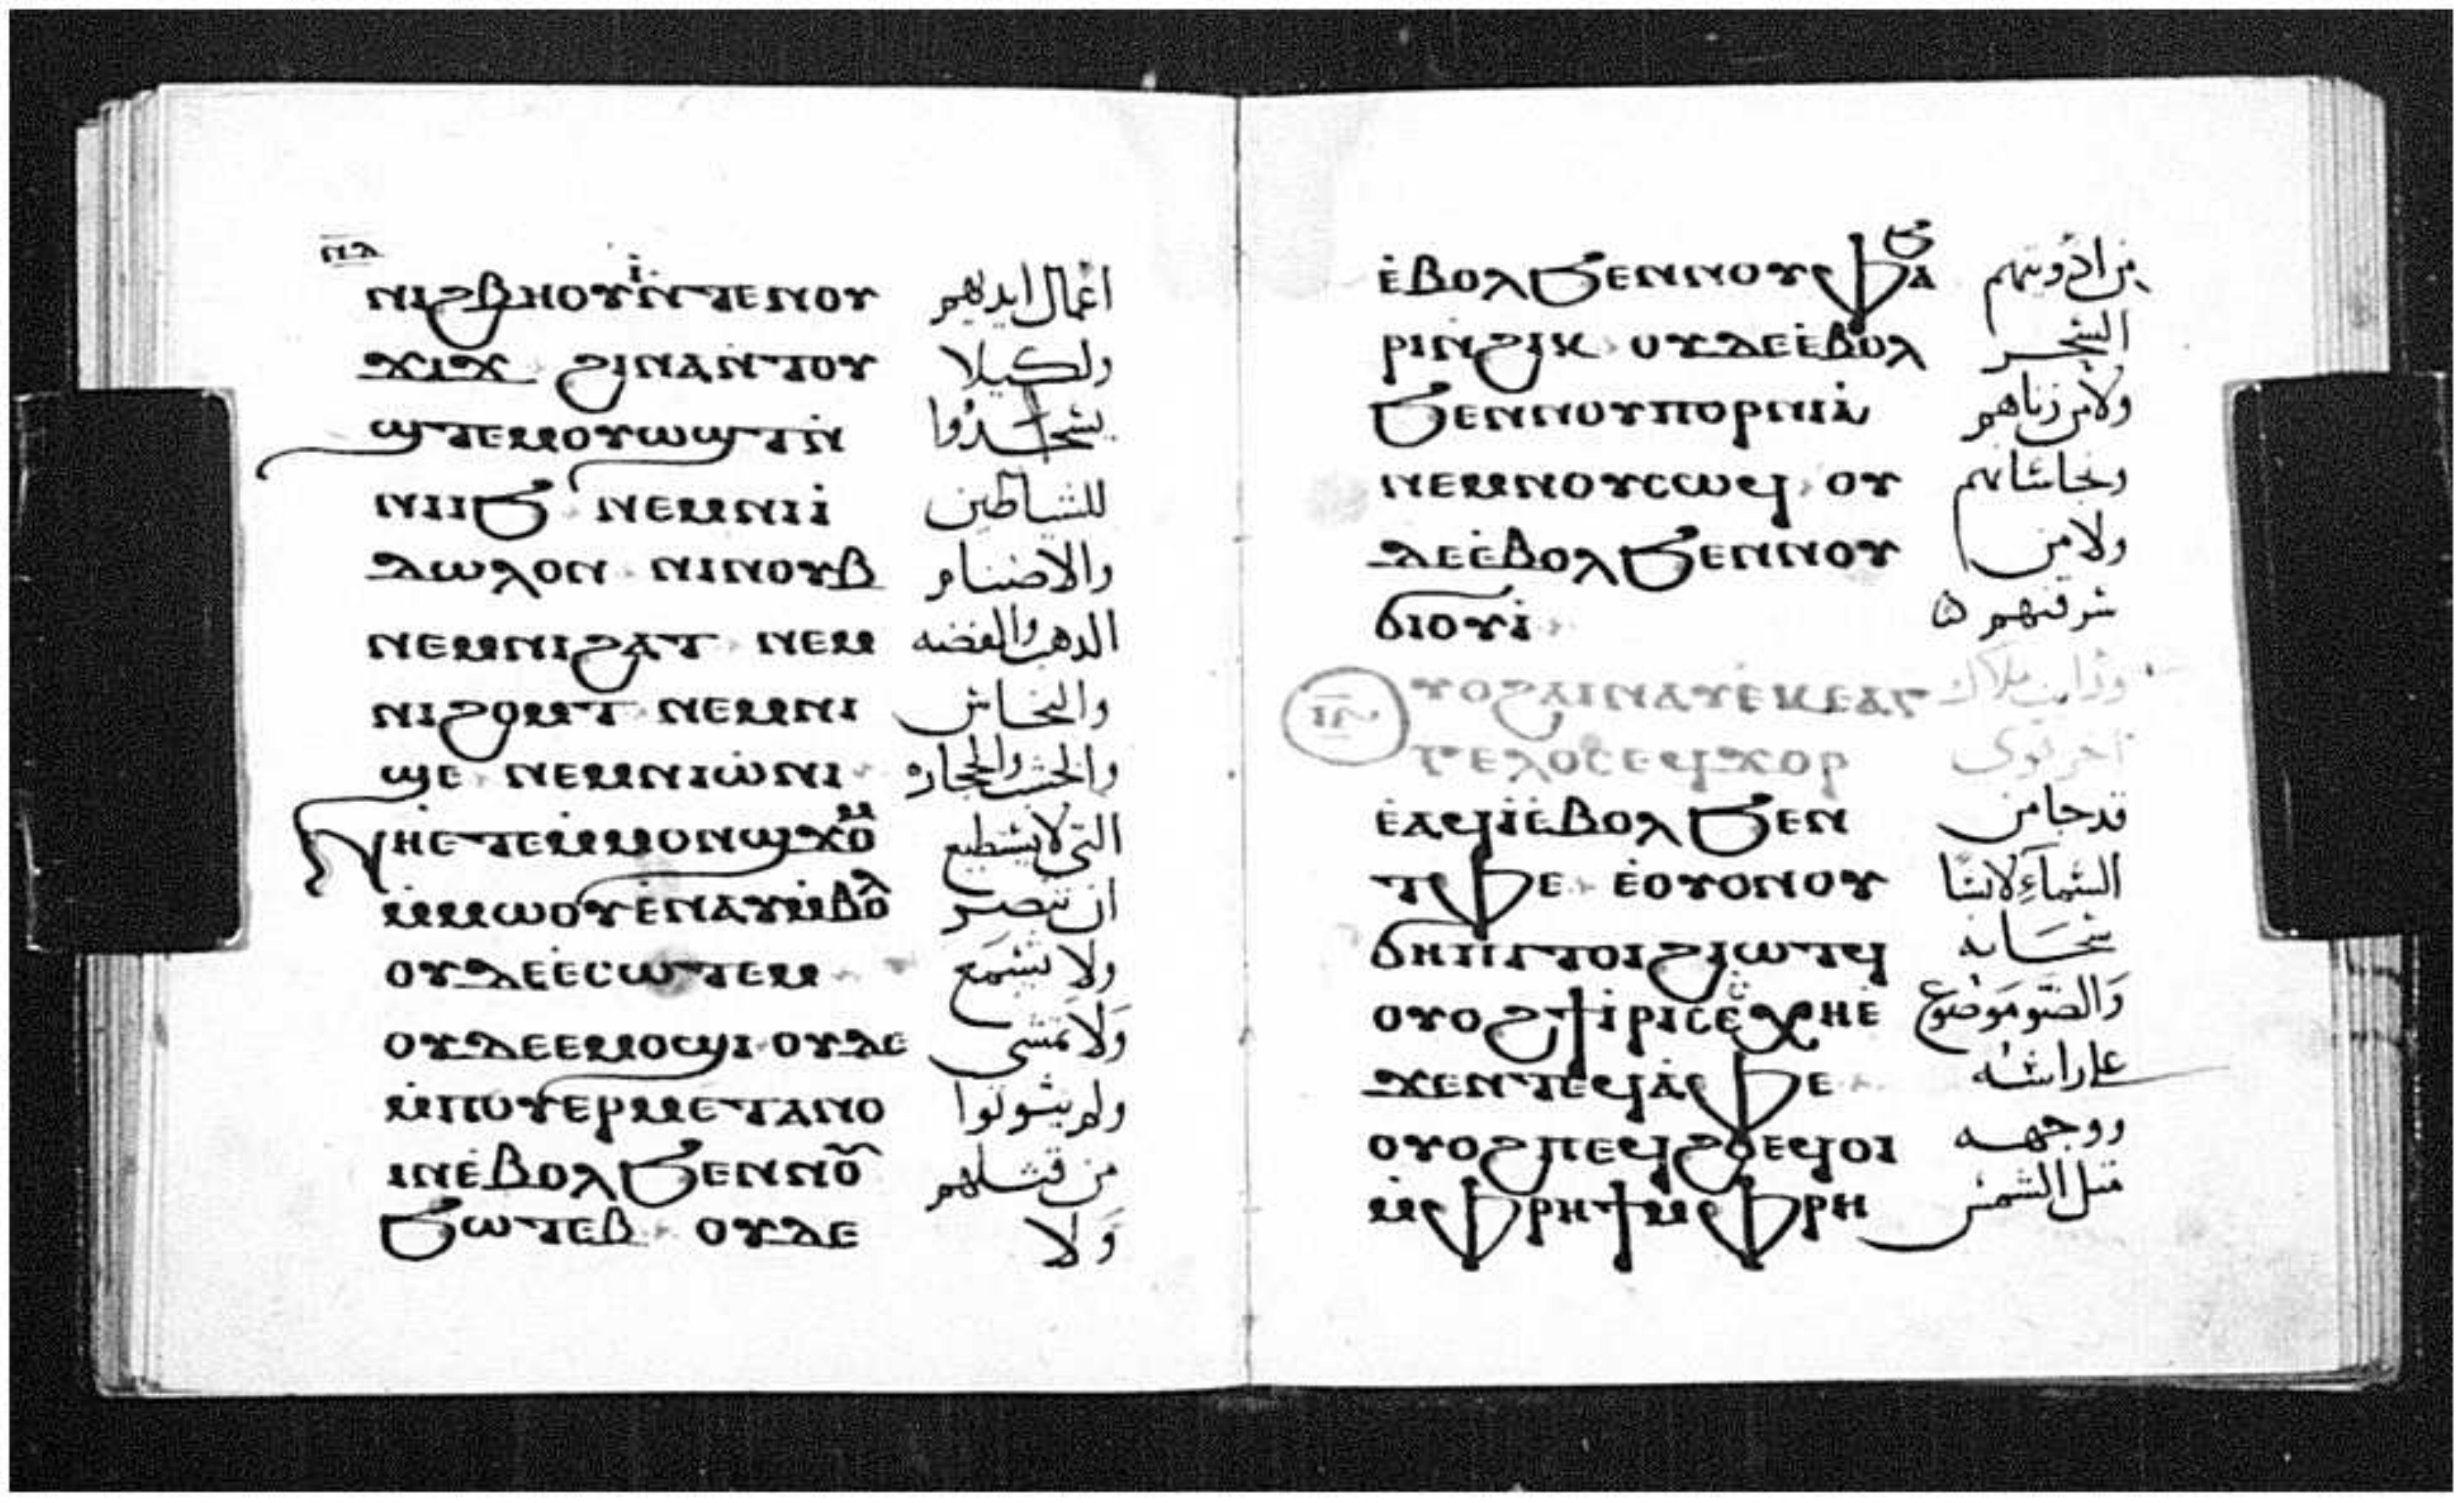 ⲡⲇ
ⲛⲓϩⲃⲏⲟⲩⲓ̀ⲛ̀ⲧⲉⲛⲟⲩ اعمال ايديهم
ϫⲓϫ ϩⲓⲛⲁⲛ̀ⲧⲟⲩ ولكيلا
ϣⲧⲉⲙⲟⲩⲱϣⲧⲛ̀ يسجدوا
ⲛⲓⲓϧ ⲛⲉⲙⲛⲓⲓ̀ للشياطين
ⲇⲱⲗⲟⲛ ⲛⲓⲛⲟⲩⲃ والاصنام
ⲛⲉⲙⲛⲓϩⲁⲧ ⲛⲉⲙ الدهب والفضه
ⲛⲓϩⲟⲙⲧ ⲛⲉⲙⲛⲓ والنحاس
ϣⲉ ⲛⲉⲙⲛⲓⲱ̀ⲛⲓ والخشب والحجاره
ⲛⲏⲉⲧⲉⲙ̀ⲙⲟⲛϣϫⲟⲙ التي لا يستطيع
ⲙ̀ⲙⲱⲟⲩⲉ̀ⲛⲁⲩⲙ̀ⲃⲟⲗ ان تبصر
ⲟⲩⲇⲉⲉ̀ⲥⲱⲧⲉⲙ ولا تسمع
ⲟⲩⲇⲉⲉⲙⲟϣⲓ ⲟⲩⲇⲉ ولا تمشي
ⲙ̀ⲡⲟⲩⲉⲣⲙⲉⲧⲁⲛⲟ ولم يتوبوا
ⲓⲛⲉ̀ⲃⲟⲗϧⲉⲛⲛⲟ︦ من قتلهم
ϧⲱⲧⲉⲃ ⲟⲩⲇⲉ ولا
ⲉ̀ⲃⲟⲗϧⲉⲛⲛⲟⲩⲫⲁϧ من ادويتهم
ⲣⲓⲛϩⲓⲕ ⲟⲩⲇⲉⲉ̀ⲃⲟⲗ السحر
ϧⲉⲛⲛⲟⲩⲡⲟⲣⲛⲓⲁ̀ ولا من زناهم
ⲛⲉⲙⲛⲟⲩⲥⲱϥ ⲟⲩ ونجاساتهم
ⲇⲉⲉ̀ⲃⲟⲗϧⲉⲛⲛⲟⲩ ولا من
ϭⲓⲟⲩⲓ̀ سرقتهم
ⲩⲟϩⲁⲓⲛⲁⲩⲉ̀ⲕⲉⲁⲅ ورايت ملاك
ⲅⲉⲗⲟⲥⲉϥϫⲟⲣ اخر قوي
ⲉⲁϥⲓ̀ⲉ̀ⲃⲟⲗϧⲉⲛ قد جا من
ⲧⲫⲉ ⲉ̀ⲟⲩⲟⲛⲟⲩ السماء لابسا
ϭⲏⲡⲓⲧⲟⲓϩⲓⲱⲧϥ سحابه
ⲟⲩⲟϩϯⲓ̀ⲣⲓⲥⲉ̀ⲥⲭⲏⲉ̀ والضو موضوع
ϫⲉⲛⲧⲉϥⲁ̀ⲫⲉ على راسه
ⲟⲩⲟϩⲡⲉϥϩⲟⲉϥⲟⲓ ووجهه
ⲙ̀ⲫⲣⲏϯⲙ̀ⲫⲣⲏ متل الشمس